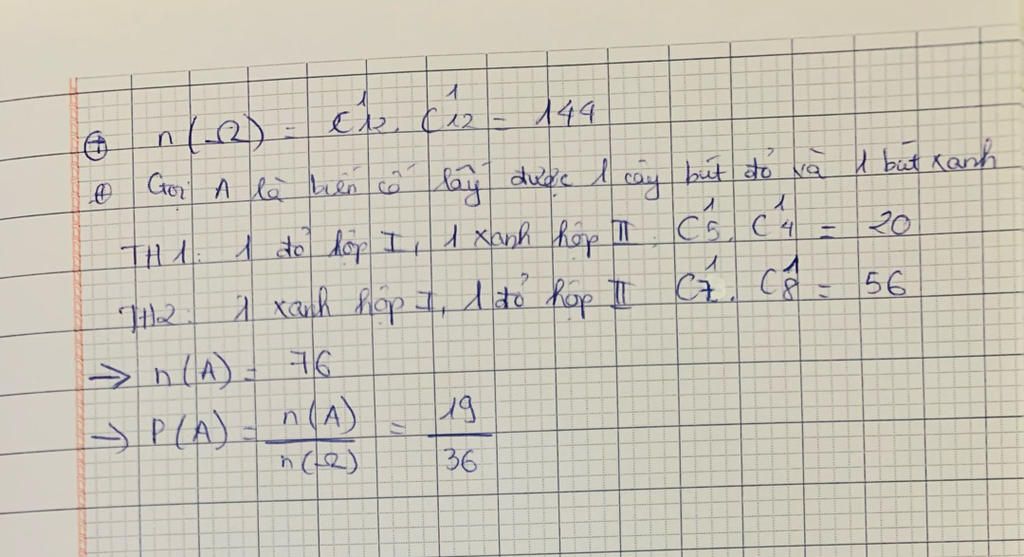 ⊕ n(Ω) = C¹₁₂. C¹₁₂ = 144
⊕ Gọi A là biến cố lấy được 1 cây bút đỏ và 1 bút xanh
TH1: 1 đỏ hộp I, 1 xanh hộp II: C¹₅. C¹₄ = 20
TH2: 1 xanh hộp I, 1 đỏ hộp II C¹₇. C¹₈ = 56
→ n(A) = 76
→ P(A) = n(A)/n(Ω) = 19/36